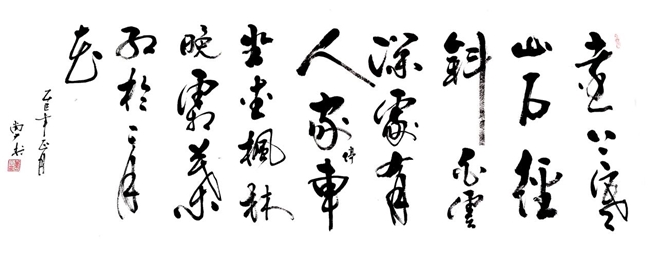 遠上寒
山石徑
斜白雲
深處有
人家停車
坐愛楓林
晚霜葉
紅於二月
花
乙巳年正月